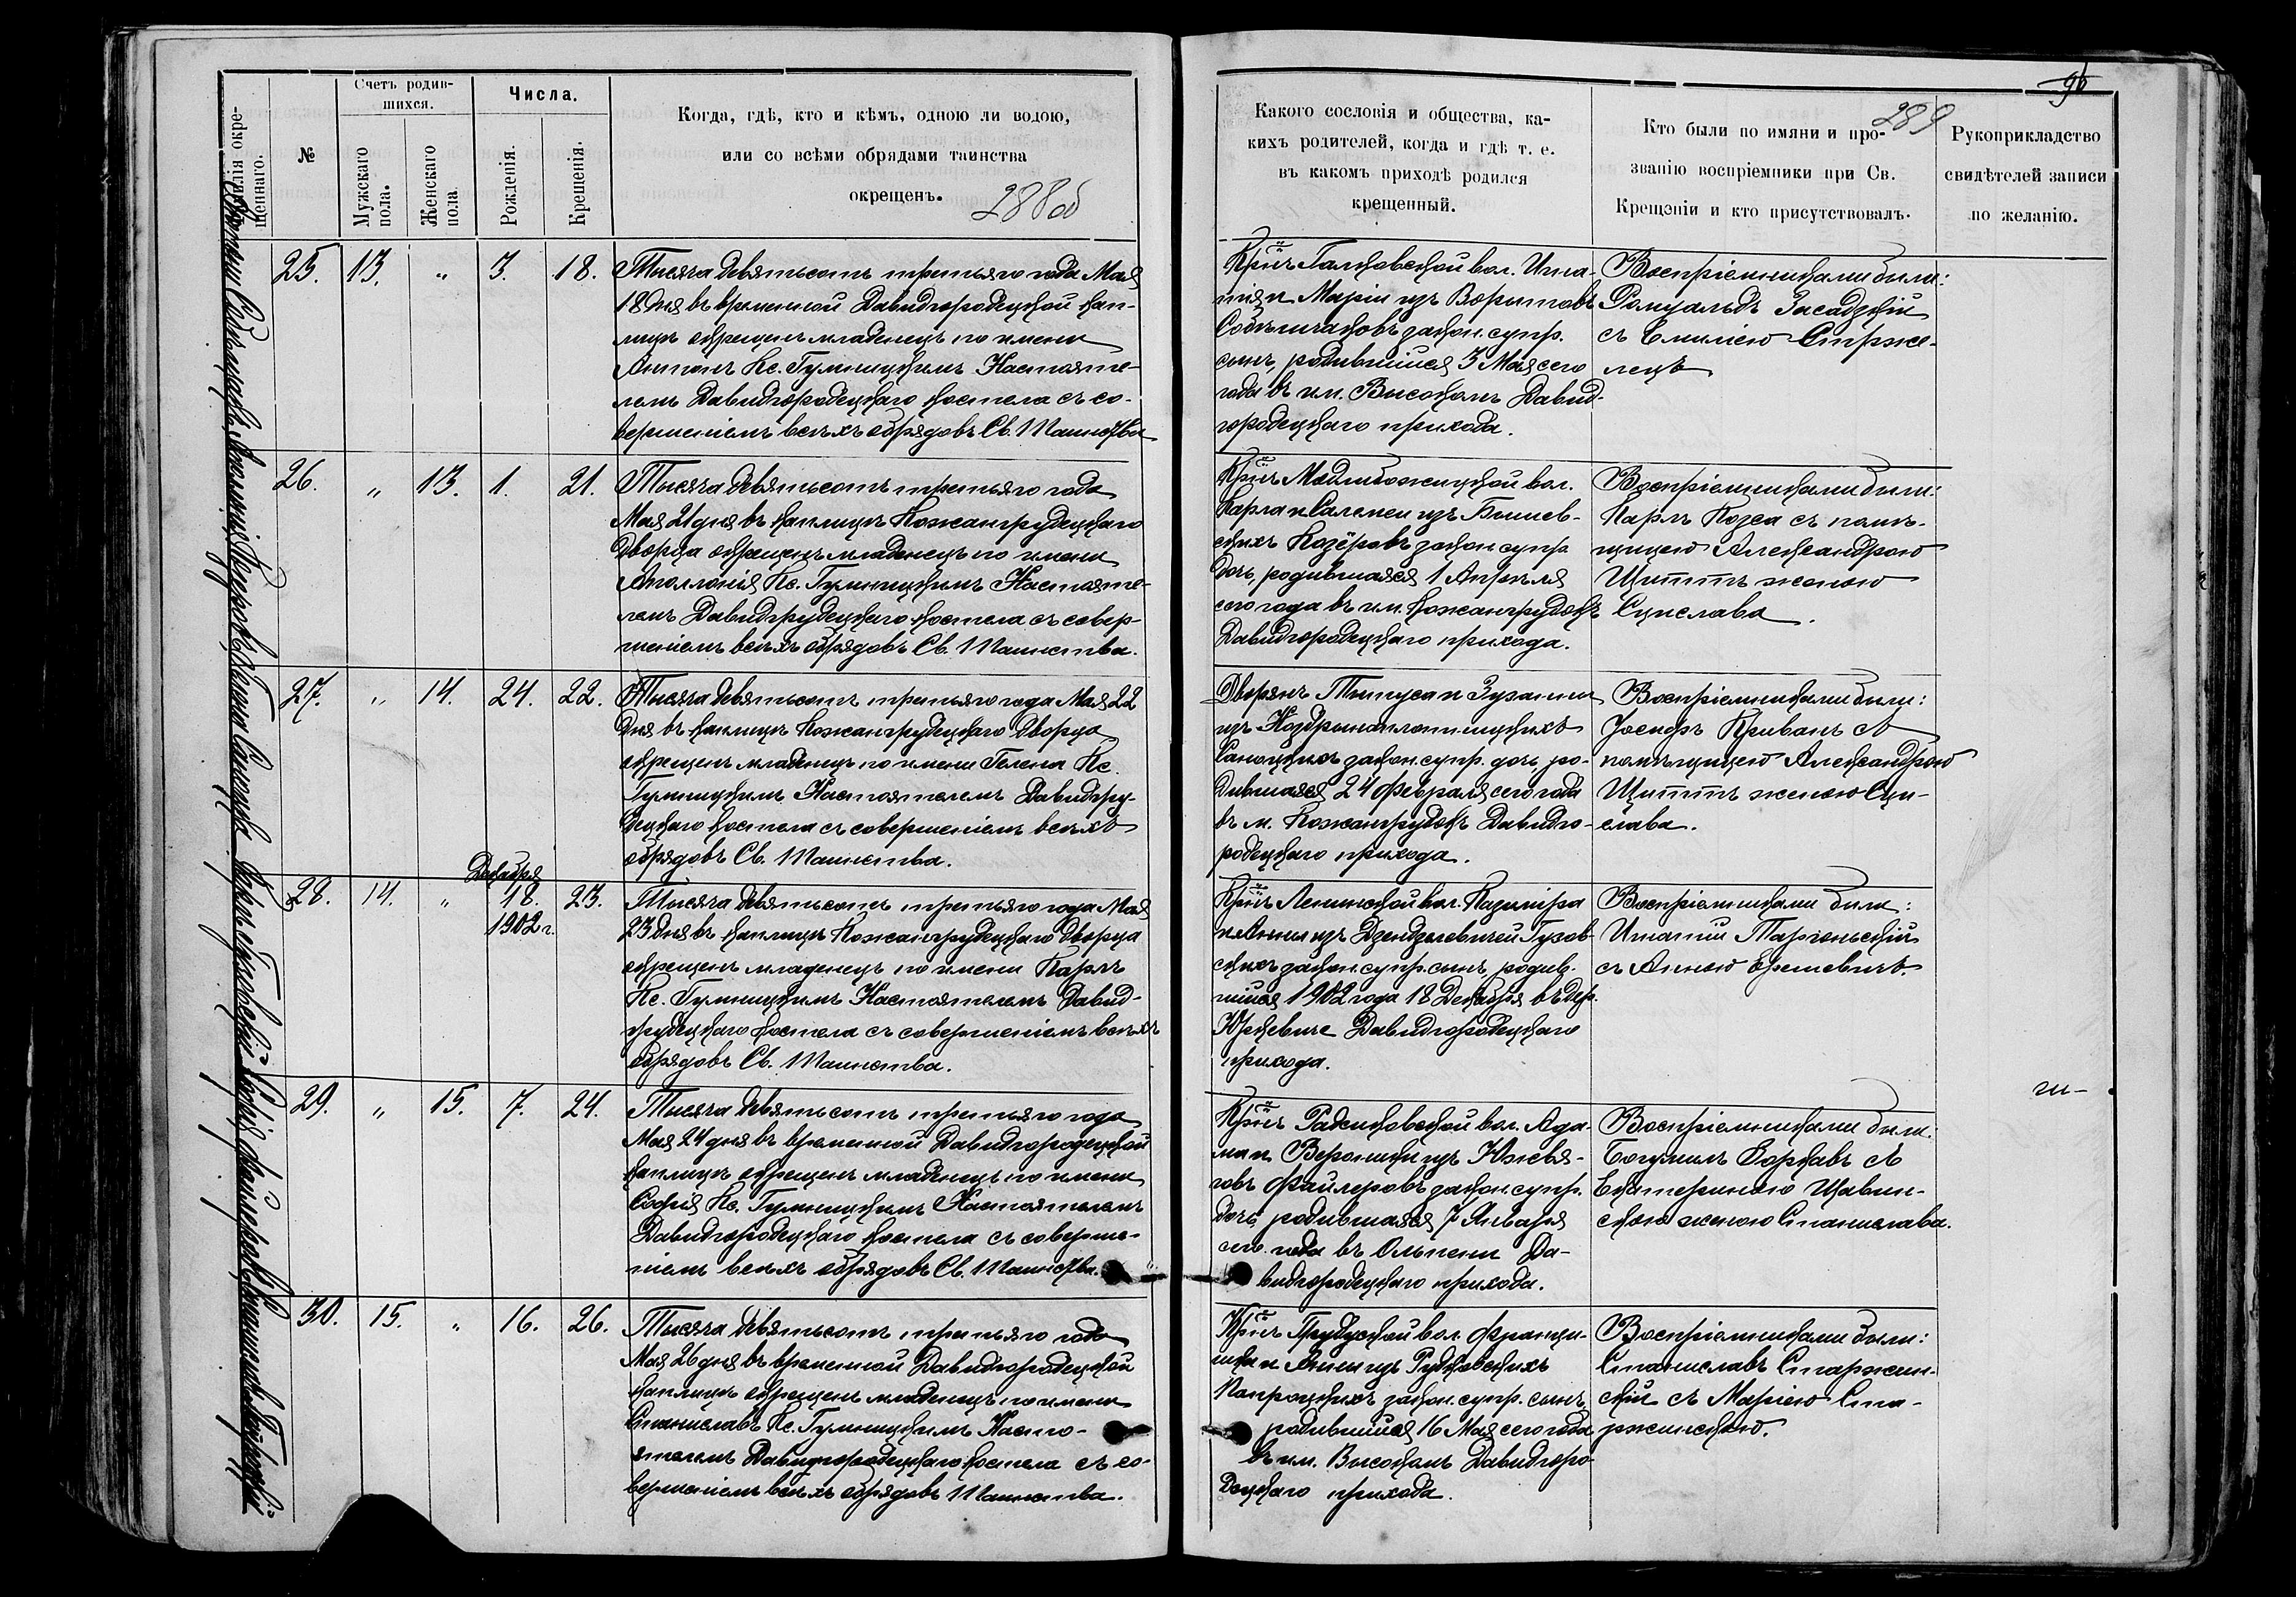 96
288об
289
Фамилія окре-
щеннаго.
№
Счетъ родив-
шихся.
Мужскаго
пола.
Женскаго
пола
Числа.
Рожденія.
Крещенія.
Когда, гдѣ, кто и кѣмъ, одною ли водою,
или со всѣми обрядами таинства
окрещенъ.
Какого сословія и общества, ка-
кихъ родителей, когда и гдѣ т. е.
въ какомъ приходѣ родился
крещенный.
Кто были по имяни и про-
званію воспріемники при Св.
Крещеніи и кто присутствовалъ.
Рукоприкладство
свидѣтелей записи
по желанію.
25. 13. „ 3. 18.
Тысяча девятьсотъ третьяго года Мая
18 дня въ временной Давидгородецкой кап-
лицѣ окрещенъ младенецъ по имени
Антонъ Кс. Гумницкимъ Настояте-
лемъ Давидгородецкаго костела съ со-
вершеніемъ всѣхъ обрядовъ Св. Таинства
вол. Игна-
тія и Маріи изъ
закон. супр.
сынъ, родившійся 3 Мая сего
года въ им. Высокомъ Давид-
городецкаго прихода.
Воспріемниками были:
Ромуальдъ Засадзкій
съ Емиліею Стрже-
лецъ
26. „ 13. 1. 21.
Тысяча девятьсотъ третьяго года
Мая 21 дня въ каплицѣ Кожангрудецкаго
Дворца окрещенъ младенецъ по имени
Аполлонія Кс. Гумницкимъ Настояте-
лемъ Давидгрудецкаго костела съ совер-
шеніемъ всѣхъ обрядовъ Св. Таинства.
вол.
Карла и Саломеи изъ Бышев-
скихъ Козёровъ закон. супр
дочь, родившаяся 1 Апрѣля
сего года въ им. Кожангрудокъ
Давидгородецкаго прихода.
Воспріемниками были:
Карлъ Козса съ помѣ-
щицею Александрою
Щиттъ женою
Сцислава.
27. „ 14. 24. 22.
Тысяча девятьсотъ третьяго года Мая 22
дня въ каплицѣ Кожангрудецкаго Дворца
окрещенъ младенецъ по имени Гелена Кс.
Гумницкимъ Настоятелемъ Давидгру-
децкаго костела съ совершеніемъ всѣхъ
обрядовъ Св. Таинства.
Дворянъ Титуса и Зузанны
изъ
закон. супр. дочь, ро-
дившаяся 24 Февраля сего года
въ м. Кожангрудокъ Давидго-
родецкаго прихода.
Воспріемниками были:
Іосифъ Криванъ съ
помѣщицею Александрою
Щиттъ женою Сци-
слава.
28. 14. „ Декабря 18. 1902 г. 23.
Тысяча девятьсотъ третьяго года Мая
23 дня въ каплицѣ Кожангрудецкаго Дворца
окрещенъ младенецъ по имени Карлъ
Кс. Гумницкимъ Настоятелемъ Давид-
грудецкаго костела съ совершеніемъ всѣхъ
обрядовъ Св. Таинства.
Ленинской вол. Казиміра
и Анны изъ Дзендзелевичей Гузов-
скихъ закон. супр. сынъ, родив-
шійся 1902 года 18 Декабря въ дер.
Юркевиче Давидгородецкаго
прихода.
Воспріемниками были:
Игнатій Таргоньскій
съ Анною Ерешевичъ.
29. „ 15. 7. 24.
Тысяча девятьсотъ третьяго года
Мая 24 дня въ временной Давидгородецкой
каплицѣ окрещенъ младенецъ по имени
Софія Кс. Гумницкимъ Настоятелемъ
Давидгородецкаго костела съ соверше-
ніемъ всѣхъ обрядовъ Св. Таинства.
вол. Ада-
ма и Вероники изъ
Файлеровъ закон. супр.
дочь, родившаяся 7 Января
сего года въ Ольпени Да-
видгородецкаго прихода.
Воспріемниками были:
Богумилъ съ
Екатериною Щавин-
скою женою Станислава.
30. 15. „ 16. 26.
Тысяча девятьсотъ третьяго года
Мая 26 дня въ временной Давидгородецкой
каплицѣ окрещенъ младенецъ по имени
Станиславъ Кс. Гумницкимъ Насто-
ятелемъ Давидгородецкаго костела съ со-
вершеніемъ всѣхъ обрядовъ Таинства.
вол. Франци-
шка и Анны изъ Рудковскихъ
Папроцкихъ закон. супр. сынъ,
родившійся 16 Мая сего года
въ им. Высокомъ Давидгоро-
децкаго прихода.
Воспріемниками были:
Станиславъ Старжин-
скій съ Маріею Ста-
ржинскою.